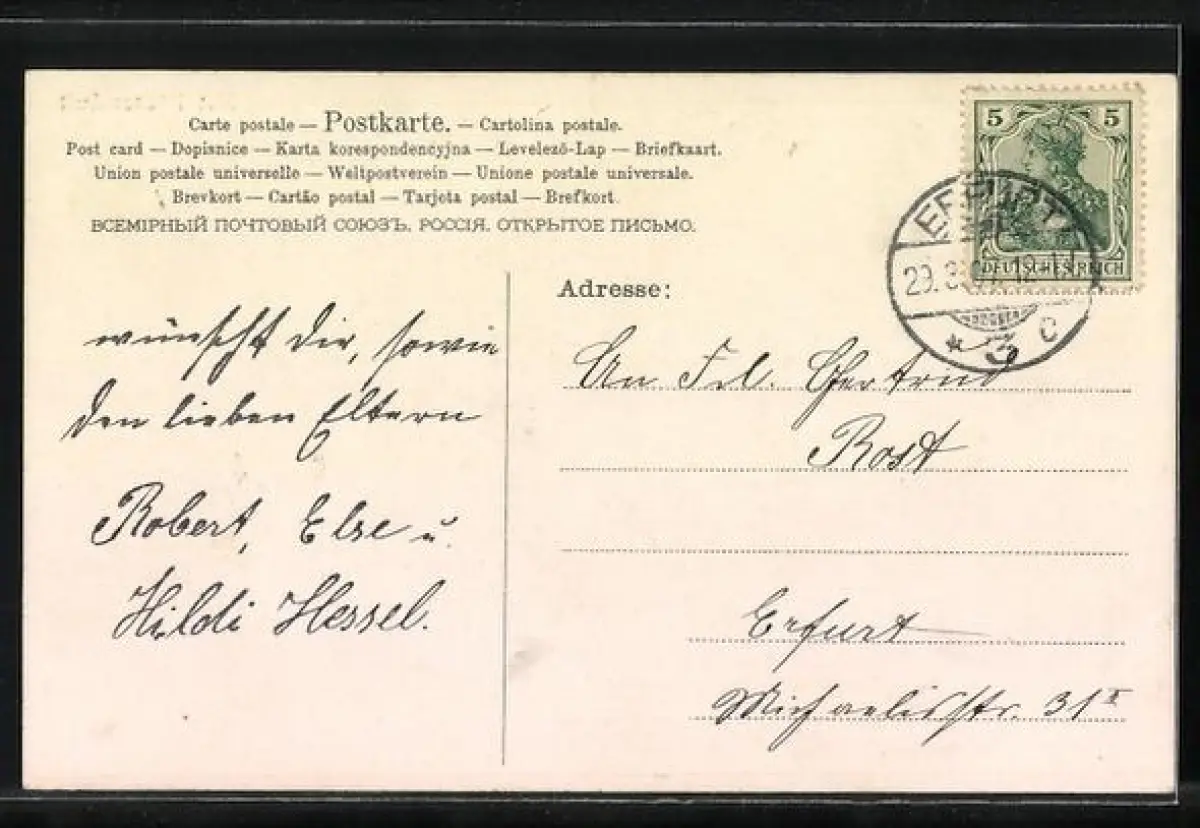 Carte postale — Postkarte. — Cartolina postale.
Post card — Dopisnice — Karta korespondencyjna — Levelező-Lap — Briefkaart.
Union postale universelle — Weltpostverein — Unione postale universale.
Brevkort — Cartão postal — Tarjeta postal — Brefkort.
ВСЕМІРНЫЙ ПОЧТОВЫЙ СОЮЗЪ. РОССІЯ. ОТКРЫТОЕ ПИСЬМО.
5 5
DEUTSCHES REICH
ERFURT
* 3 c
wünscht Dir, sowie
den lieben Eltern
Robert, Else u.
Hildi Hessel.
Adresse:
An Frl. Gertrud
Rost
Erfurt
Michaelisstr. 31 II